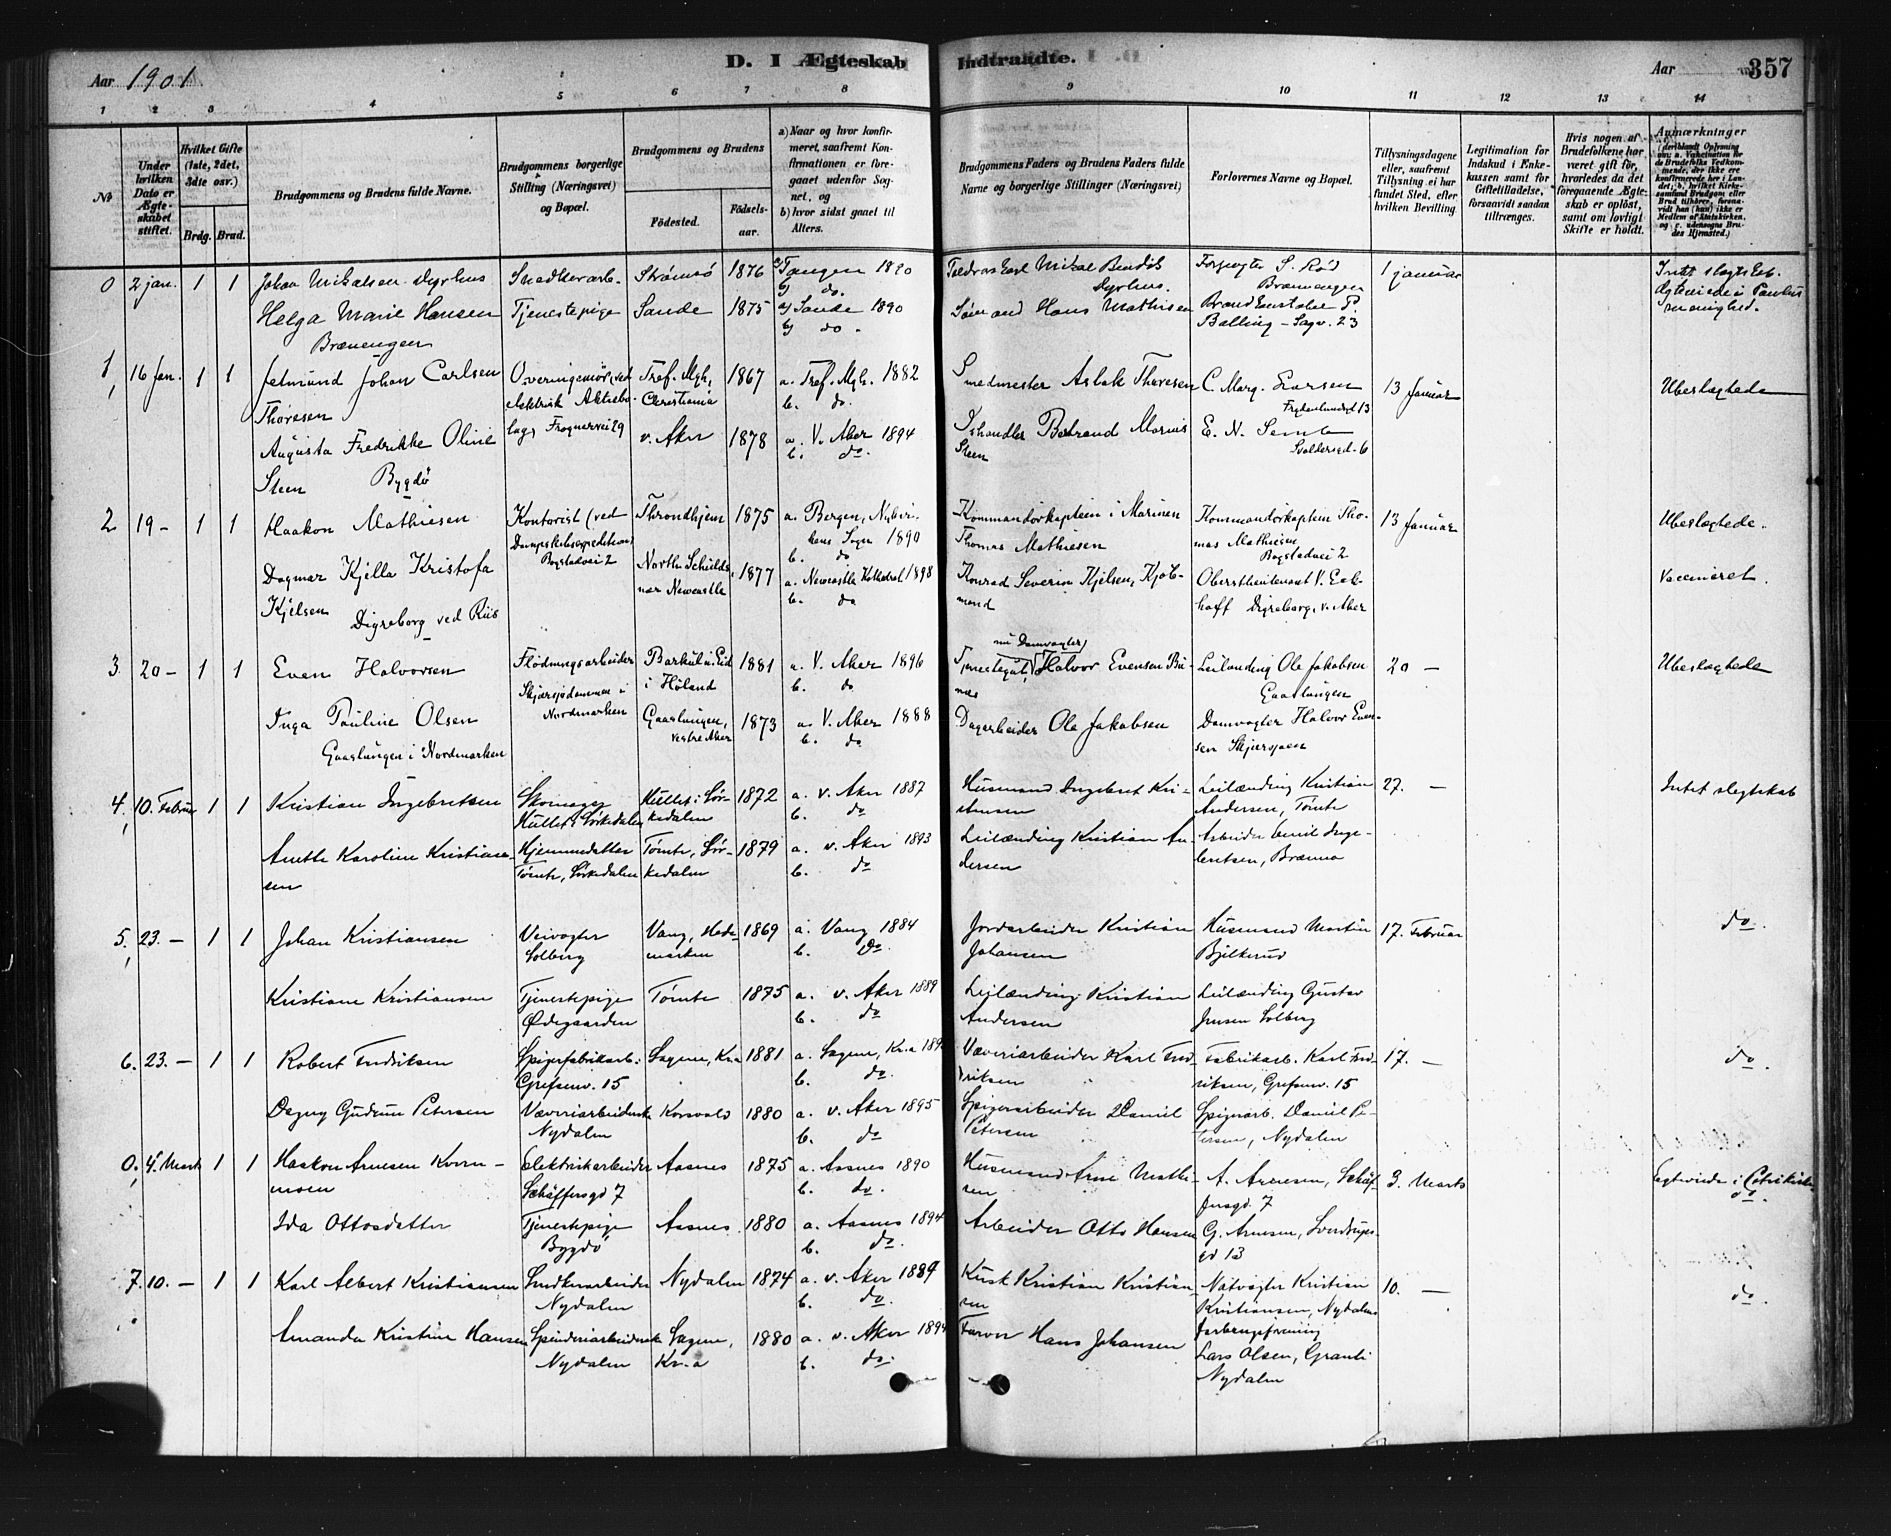 Aar 1901
D. I Ægteskab Indtraadte.
Aar
357
1 2 3 4 5 6 7 8 9 10 11 12 13 14
No
Under hvilken Dato er Ægteskabet stiftet.
Hvilket Gifte (1ste, 2det, 3die osv.)
Brdg. Brud.
Brudgommens og Brudens fulde Navne.
Brudgommens borgerlige Stilling (Næringsvei) og Bopæl.
Brudgommens og Brudens
Fødested.
Fødselsaar.
a) Naar og hvor konfirmeret, saafremt Konfirmationen er foregaaet udenfor Sognet, og
b) hvor sidst gaaet til Alters.
Brudgommens Faders og Brudens Faders fulde Navne og borgerlige Stillinger (Næringsvei)
Forlovernes Navne og Bopæl.
Tillysningsdagene eller, saafremt Tillysning ei har fundet Sted, efter hvilken Bevilling.
Legitimation for Indskud i Enkekassen samt for Giftetilladelse, forsaavidt saadan tiltrænges.
Hvis nogen af Brudefolkene har været gift før, hvorledes da det foregaaende Ægteskab er opløst, samt om lovligt Skifte er holdt.
Anmærkninger
0 2 jan. 1 1 Johan Mikalsen Dyrhus Snedkerarb. Strømsø 1876 a) Tangen 1890 b) do.
Mikal Bendik Dyrhus. S. Rød Brænengen 1 januar
Helga Marie Hansen Brænengen Tjenestepige Sande 1875 a) Sande 1890 b) do.
Hans Mathisen P. Balling - Sagv. 23
1, 16 Jan. 1 1 Jetmund Johan Carlsen Thoresen
elektrisk Frognervei 29 Tref. Mgh., Christiania 1867 a. Tref. Mgh. 1882 b. do.
Smedmester Aslak Thoresen C. Marg. Larsen Frydenlundgd 13 13 Januar Ubeslægtede
Augusta Fredrikke Oline Steen Bygdø v. Aker 1878 a. V. Aker 1894 b. do.
Ishandler Bertrand Marius Steen E. N. Semb Svoldersgd. 6
2 19 - 1 1 Haakon Mathiesen Kontorist (ved Dampskibsexpedition) Bogstadvei 2 Throndhjem 1875 a. Bergen, Nykirkens Sogn 1890 b. do
Kommandørkaptein i Marinen Thomas Mathiesen Kommandørkaptein Thomas Mathiesen Bogstadvei 2 13 Januar Ubeslægtede.
Dagmar Kjella Kristofa Kjelsen Digreborg ved Riis North Schields nær Newcastle 1877 a. Newcastle Kathedral 1898 b. do
Konrad Severin Kjelsen, Kjøbmand Oberstlieutenant V. Eckhoff Digreborg, v. Aker Vaccineret.
3. 20 - 1 1 Even Halvorsen Flødningsarbeider Skjærsjødammen i Nordmarken i Høland 1881 a. V. Aker 1896 b. do
nu Damvogter Halvor Evensen Leilænding Ole Jakobsen Gaaslungen 20 - Ubeslægtede
Inga Pauline Olsen Gaaslungen i Nordmarken Gaaslungen, vestre Aker 1873 a. V. Aker 1888 b. do
Dagarbeider Ole Jakobsen Damvogter Halvor Evensen Skjærsjøen
4, 10. Februar 1 1 Kristian Ingebretsen Skomager Hullet i Sørkedalen Hullet i Sørkedalen 1872 a. v. Aker 1887 b. do
Husmand Ingebret Kristensen Leilænding Kristian Andersen, Tømte 27. - Intet slegtskab
Anette Karoline Kristiansen Hjemmedatter Tømte, Sørkedalen Tømte, Sørkedalen 1879 a. v. Aker 1893 b. do
Leilænding Kristian Andersen Arbeider Emil Ingebretsen, Brænna
5, 23. - 1 1 Johan Kristiansen Veivogter Solberg Vang, Hedemarken 1869 a. Vang 1884 b. Do
Jordarbeider Kristian Johansen Husmand Martin Bjilkerud 17. Februar do.
Kristiane Kristiansen Tjenestepige Ødegaarden Tømte 1875 a. v. Aker 1889 b. do
Leilænding Kristian Andersen Leilænding Gustav Jensen Solberg
6. 23. - 1 1 Robert Fredriksen Spigerfabrikarb. Grefsenv. 15 Sagene, Kr.a 1881 a. Sagene, Kr.a b. do.
Væveriarbeider Karl Fredriksen Fabrikarb. Karl Fredriksen, Grefsenv. 15 17. - do
Dagny Gudrun Petersen Væveriarbeiderske Nydalen Korsvold 1880 a. v. Aker 1895 b. do
Spigerarbeider Daniel Petersen Spigerarb. Daniel Petersen, Nydalen
0, 4. Marts 1 1 Haakon Arnesen Kornmoen Elektriskarbeider Schäffersgd 7 Aasnes 1875 a. Aasnes 1890 b. do.
Husmand Arne Mathisen A. Arnesen, Schäffersgd. 7 3. Marts Egteviede i Petrikirke do.
Ida Ottosdatter Tjenestepige Bygdø Aasnes 1880 a. Aasnes 1894 b. do.
Arbeider Otto Hansen G. Arnesen, Sverdrupsgd 13
7. 10. - 1 1 Karl Albert Kristiansen Snedkerarbeider Nydalen Nydalen 1874 a. v. Aker 1889 b. do.
Kusk Kristian Kristiansen Natvogter Kristian Kristiansen, Nydalens forbrugsforening 10. - do.
Amanda Kristine Hansen Spinderiarbeiderske Nydalen Sagene, Kr.a 1880 a. v. Aker 1894 b. do.
Farver Hans Johansen Lars Olsen, Granli Nydalen